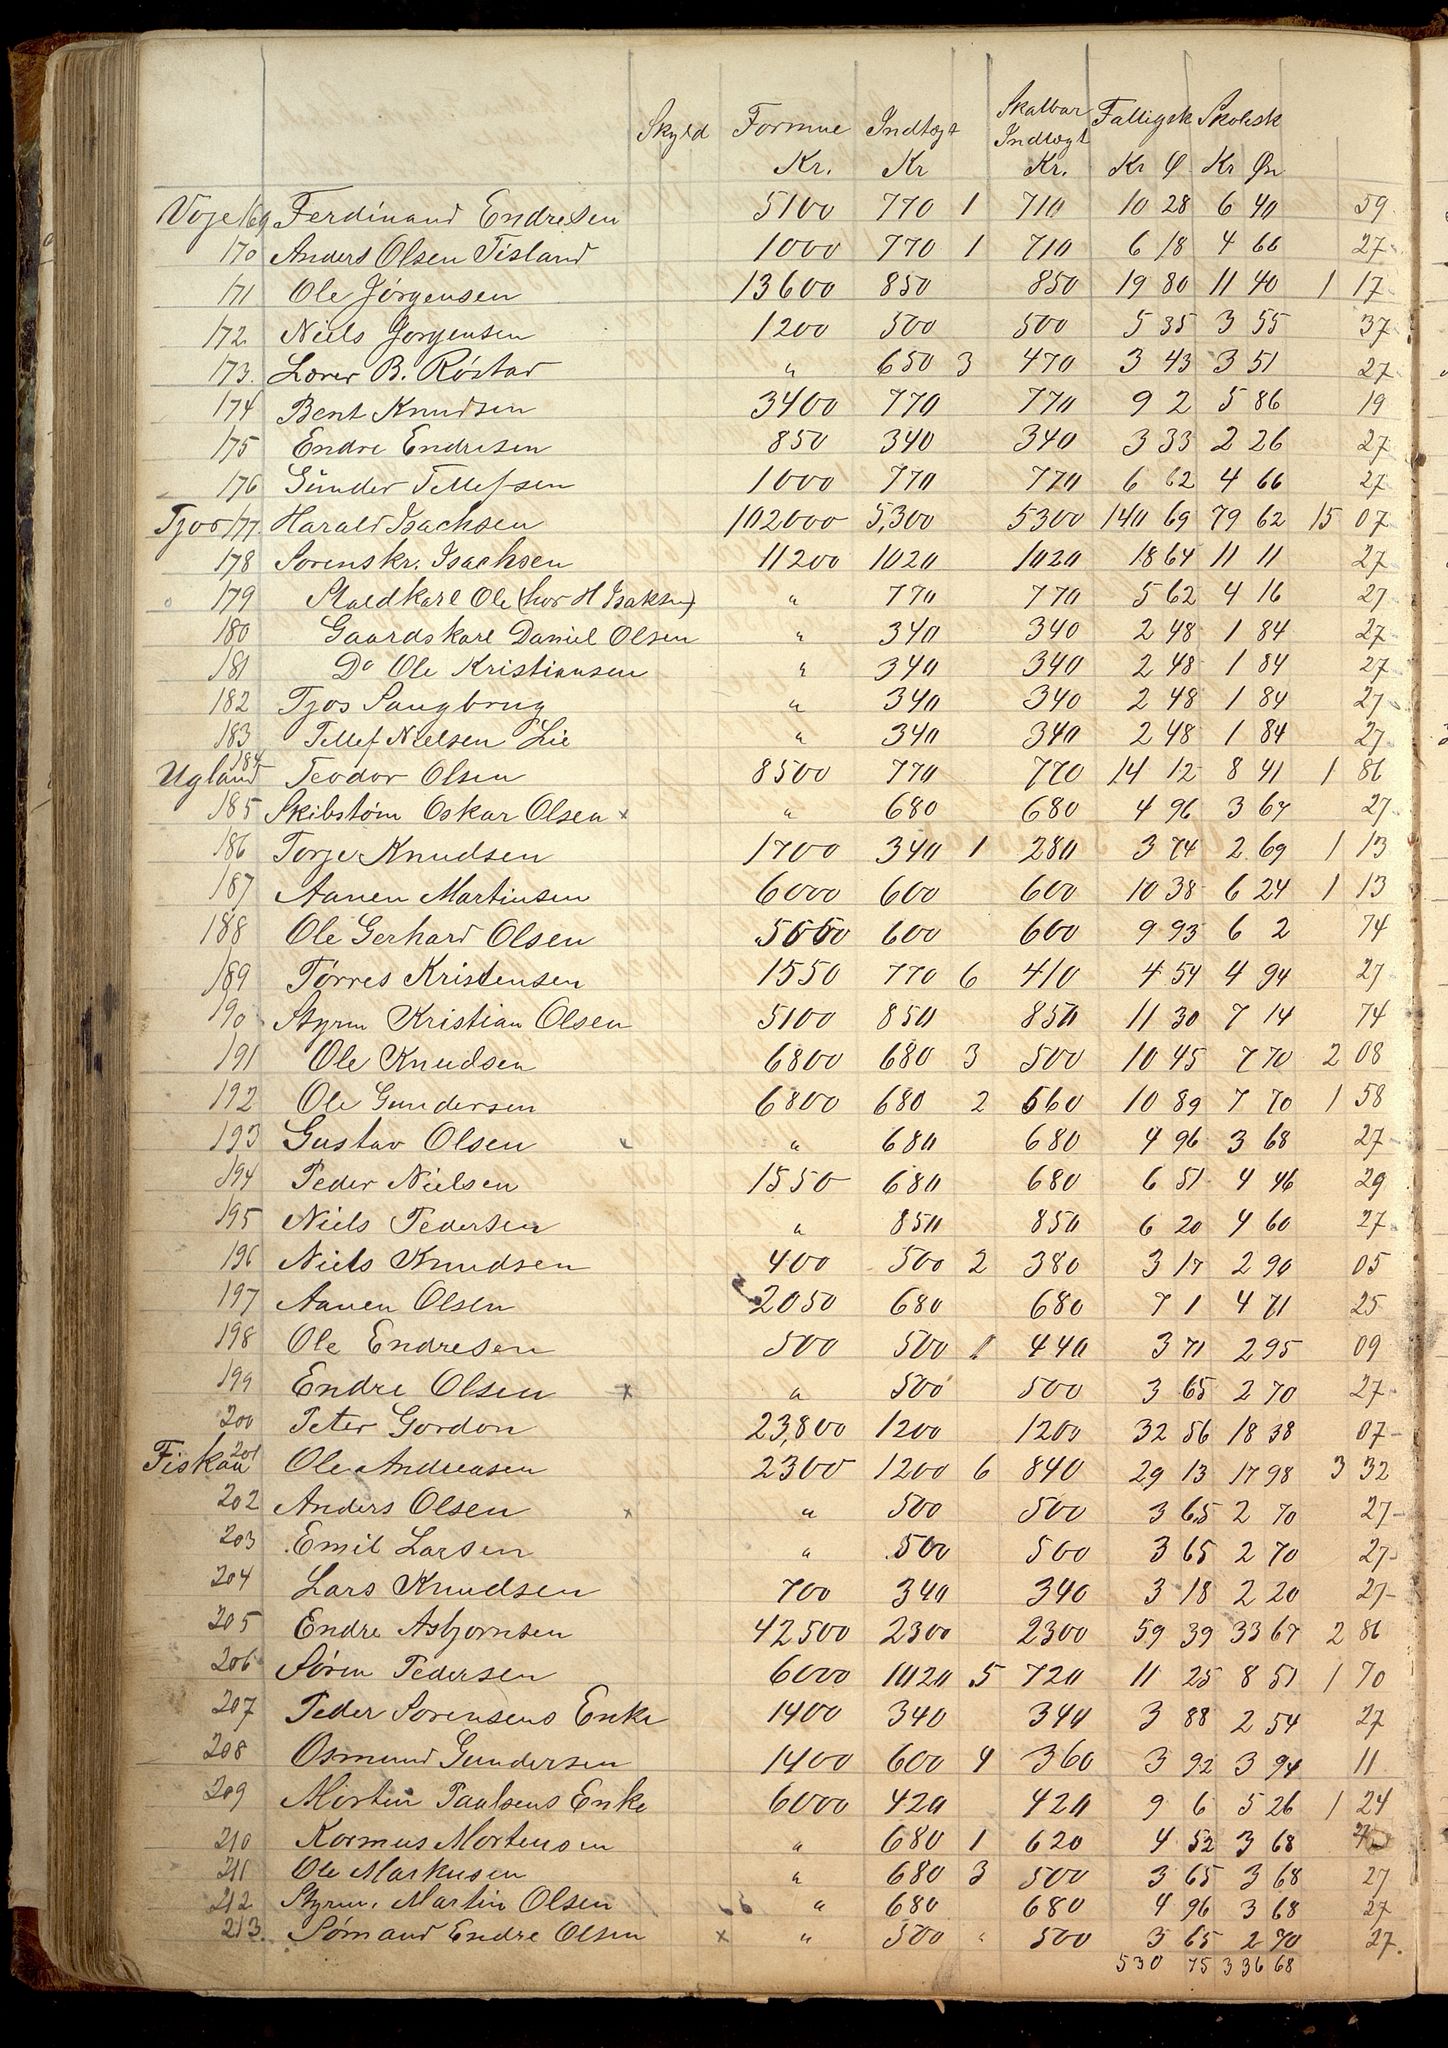 Skyld Formue Indtægt Skatbar Indtægt Fattigsk Skolesk
Kr. Kr Kr. Kr Ø Kr Øre
Voje 169 Ferdinand Endresen 5100 770 1 710 10 28 6 40 59
170 Anders Olsen Tisland 1000 770 1 710 6 18 4 66 27
171 Ole Jørgensen 13600 850 850 19 80 11 40 1 17
172 Niels Jorgensen 1200 500 500 5 35 3 55 37
173. Lærer B. Røstad " 650 3 470 3 43 3 51 27
174 Bent Knudsen 3400 770 770 9 2 5 86 19
175 Endre Endresen 850 340 340 3 33 2 26 27
176 Günder Tellefsen 1000 770 770 6 62 4 66 27
Tjos 177. Harald Isachsen 102000 5,300 5300 140 69 79 62 15 07
178 Sorenskr. Isachsen 11200 1020 1020 18 64 11 11 27
179 Staldkarl Ole (hos H Isaksen) " 770 770 5 62 4 16 27
180 Gaardskarl Daniel Olsen " 340 340 2 48 1 84 27
181 Do Ole Kristiansen " 340 340 2 48 1 84 27
182 Tjos Saugbrug " 340 340 2 48 1 84 27
183 Tellef Nielsen Lie " 340 340 2 48 1 84 27
Ugland 184 Teodor Olsen 8500 770 770 14 12 8 41 1 86
185 Skibstøm Oskar Olsen x " 680 680 4 96 3 67 27
186 Torje Knudsen 1700 340 1 280 3 74 2 69 1 13
187 Aanen Martinsen 6000 600 600 10 38 6 24 1 13
188 Ole Gerhard Olsen 5000 600 600 9 93 6 2 74
189 Tørres Kristensen 1550 770 6 410 4 54 4 94 27
190 Styrm Kristian Olsen 5100 850 850 11 30 7 14 74
191 Ole Knudsen 6800 680 3 500 10 45 7 70 2 08
192 Ole Gundersen 6800 680 2 560 10 89 7 70 1 58
193 Gustav Olsen x " 680 680 4 96 3 68 27
194 Peder Nielsen 1550 680 680 6 51 4 46 29
195 Niels Pedersen " 850 850 6 20 4 60 27
196 Niels Knudsen 400 500 2 380 3 17 2 90 05
197 Aanen Olsen 2050 680 680 7 1 4 71 25
198 Ole Endresen 500 500 1 440 3 71 2 95 09
199 Endre Olsen x " 500 500 3 65 2 70 27
200 Peter Gordon 23,800 1200 1200 32 56 18 38 07
Fiskaa 201 Ole Andreasen 2300 1200 6 840 29 13 17 98 3 32
202 Anders Olsen x " 500 500 3 65 2 70 27
203 Emil Larsen " 500 500 3 65 2 70 27
204 Lars Knudsen 700 340 340 3 18 2 20 27
205 Endre Asbjornsen 42500 2300 2300 59 39 33 67 2 86
206 Søren Pedersen 6000 1020 5 720 11 25 8 51 1 70
207 Peder Sorensens Enke 1400 340 340 3 88 2 54 27
208 Osmund Gundersen 1400 600 4 360 3 92 3 94 11
209 Morten Paulsens Enke 6000 420 420 9 6 5 26 1 24
210 Rasmus Mortensen " 680 1 620 4 52 3 68
211 Ole Markusen " 680 3 500 3 65 3 68 27
212 Styrm. Martin Olsen " 680 680 4 96 3 68 27
213. Sømand Endre Olsen x " 500 " 500 3 65 2 70 27.
530 75 336 68